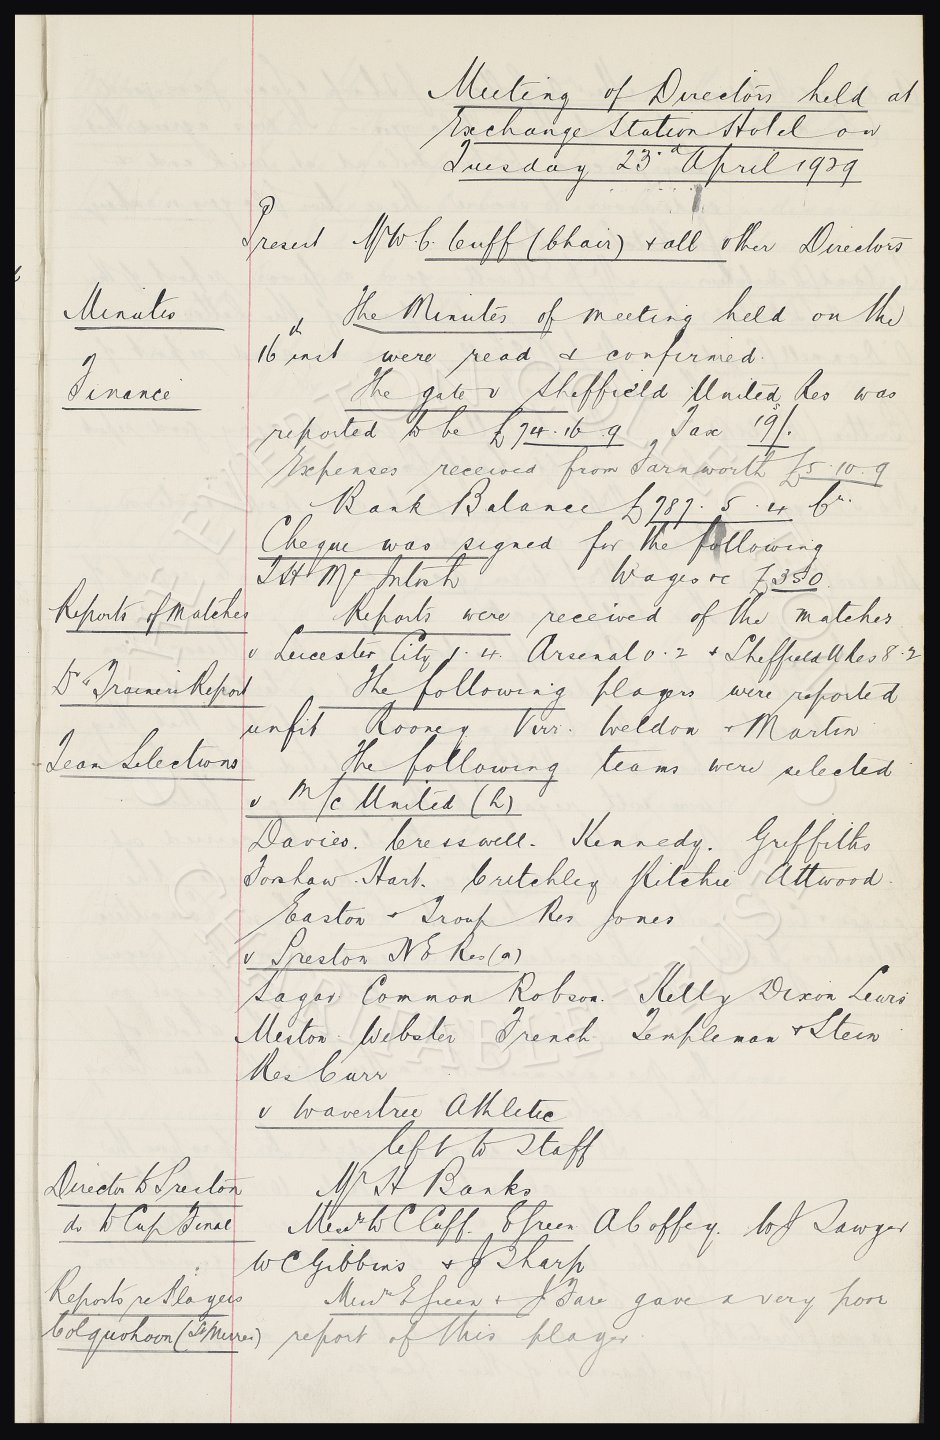 Meeting of Directors held at
Exchange Station Hotel on
Tuesday 23rd April 1929
Present Mr W.C. Cuff (Chair) & all other Directors
Minutes The Minutes of meeting held on the
16th inst were read & confirmed.
Finance The gate v Sheffield United Res was
reported to be £74.16.9 Tax 19/.
Expenses received from Farnworth £5.10.9
Bank Balance £787.5.4 Cr.
Cheque was signed for the following
T H McIntosh Wages &c £350.
Reports of Matches Reports were received of the matches
v Leicester City 1.4. Arsenal 0.2 & Sheffield U Res 8.2
Dr & Trainers Report The following players were reported
unfit Rooney Virr. Weldon & Martin
Team Selections The following teams were selected
v M/c United (h)
Davies. Cresswell. Kennedy. Griffiths
Forshaw. Hart. Critchley Ritchie Attwood.
Easton & Troup Res Jones
v Preston N E Res (a)
Sagar Common Robson. Kelly Dixon Lewis
Meston. Webster French Templeman & Stein
Res Curr
v Wavertree Athletic
left to Staff
Director to Preston Mr H Banks
do to Cup Final Messrs W C Cuff. E Green A Coffey. W J Sawyer
W C Gibbins & J Sharp
Reports re Players Messrs E Green & J Fare gave a very poor
Colquohoun (St Mirren) report of this player.
THE EVERTON COLLECTION
CHARITABLE TRUST